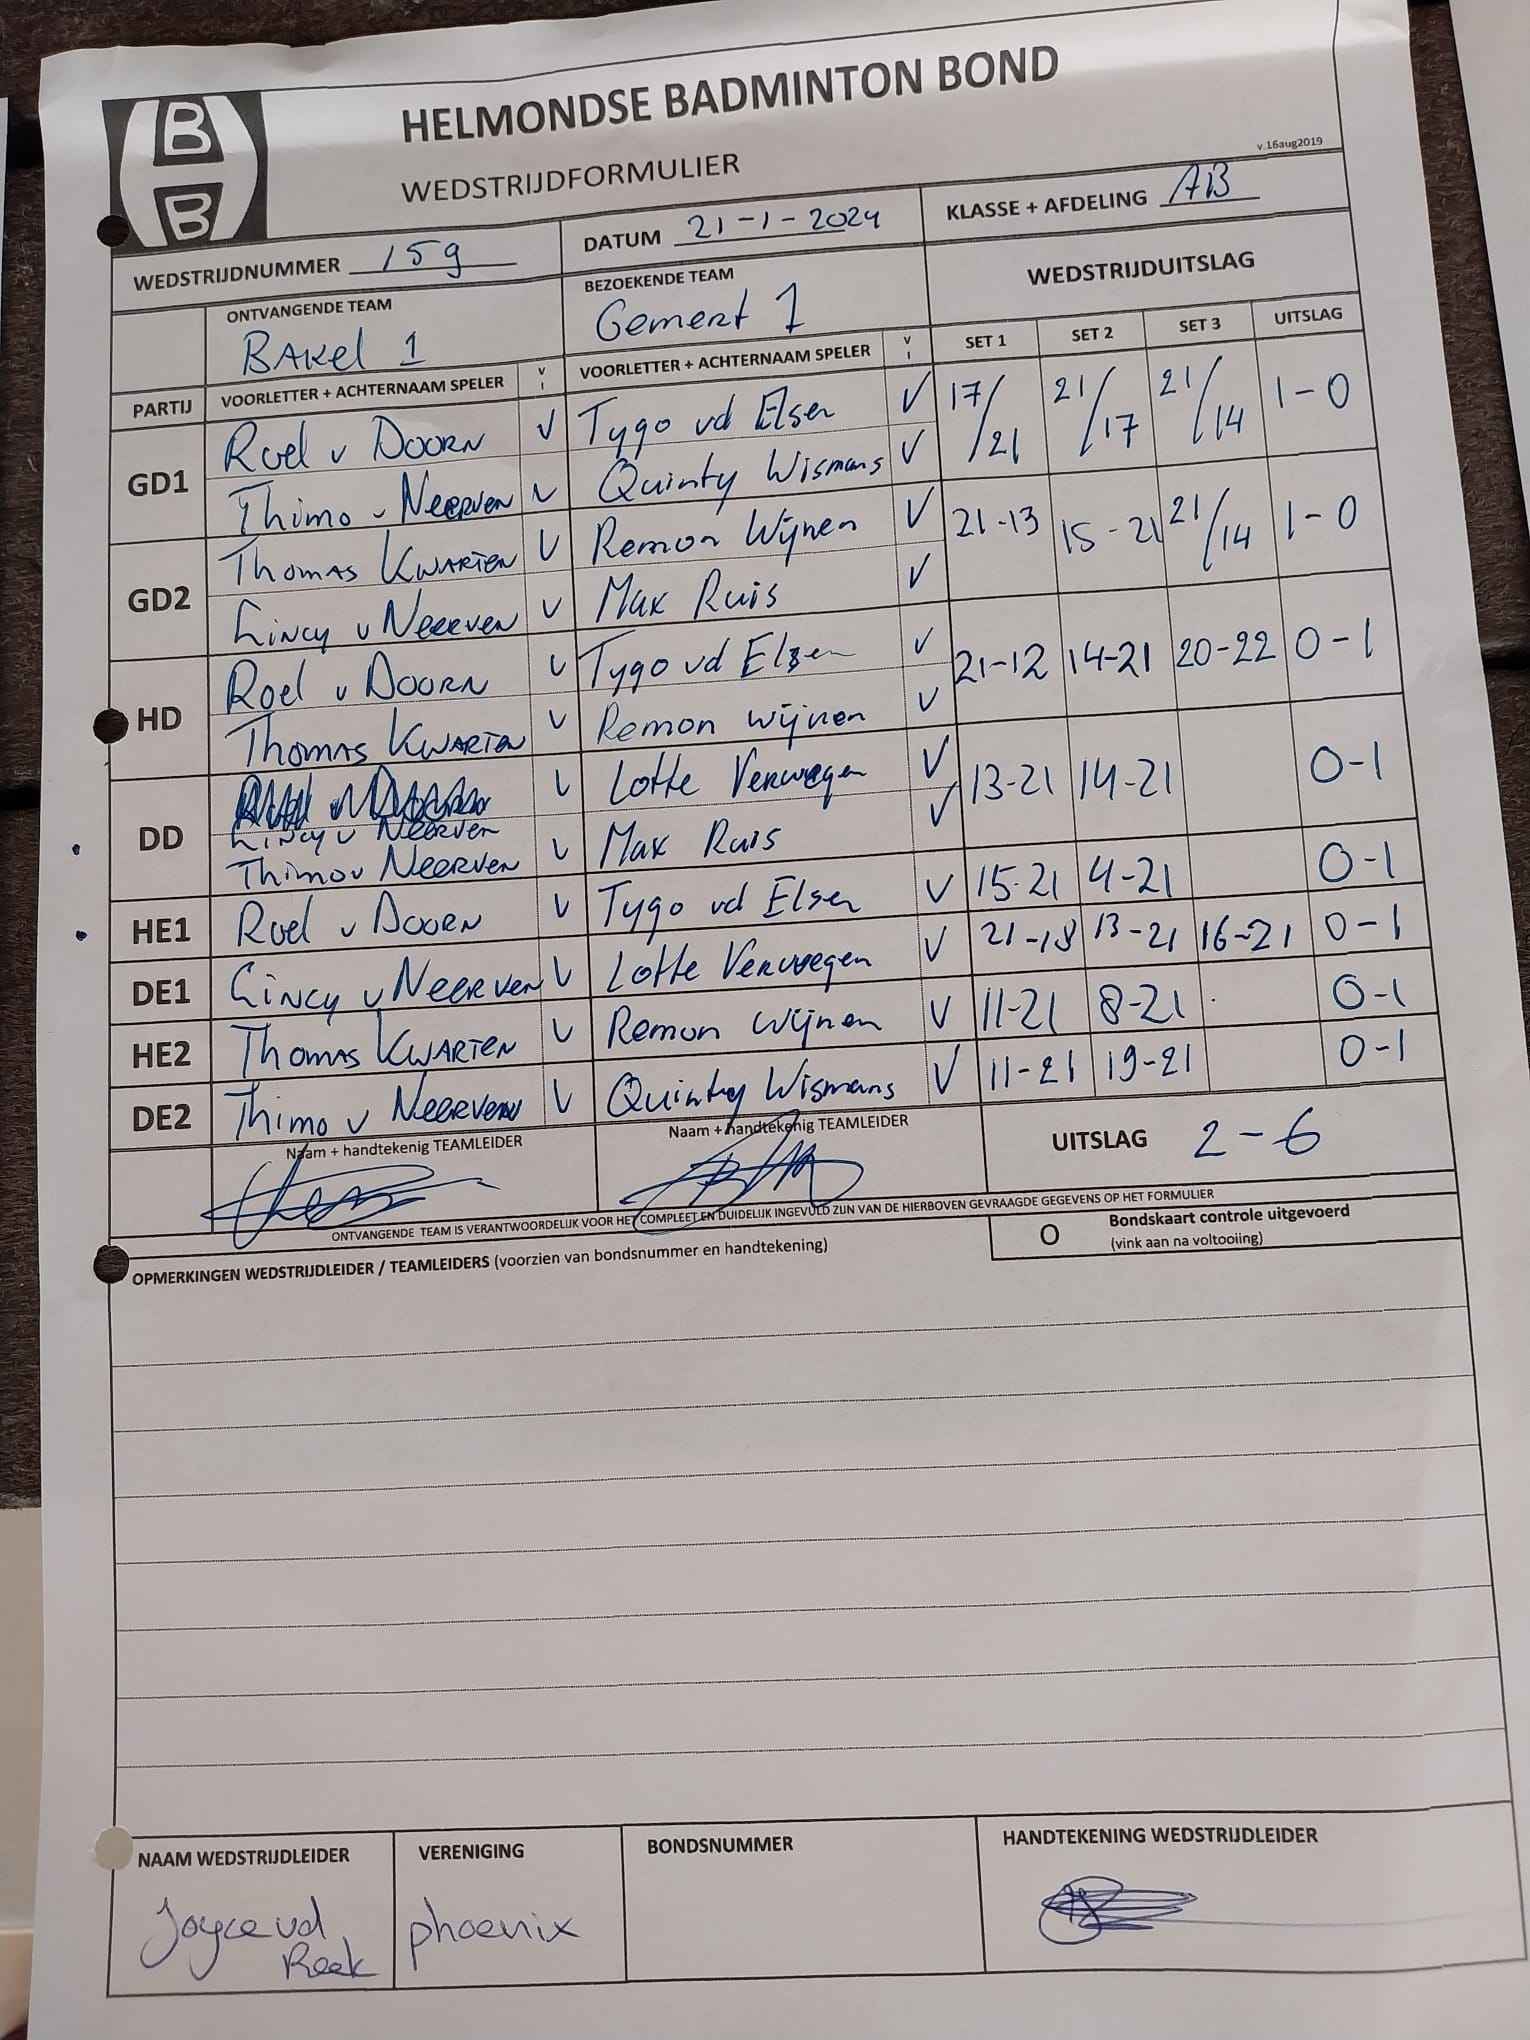 HELMONDSE BADMINTON BOND
WEDSTRIJDFORMULIER
v.16aug2019
B
B
WEDSTRIJDNUMMER 159
DATUM 21-1-2024
KLASSE + AFDELING AB
ONTVANGENDE TEAM
BAKEL 1
BEZOEKENDE TEAM
Gemert 1
WEDSTRIJDUITSLAG
PARTIJ VOORLETTER + ACHTERNAAM SPELER V I VOORLETTER + ACHTERNAAM SPELER V I SET 1 SET 2 SET 3 UITSLAG
GD1 Roel v DOORN V Tygo vd Elsen V 17/21 21/17 21/14 1-0
Thimo v NEERVEN V Quinty Wismans V
GD2 THOMAS KWARTEN V Remon Wijnen V 21-13 15-21 21/14 1-0
LINCY v NEERVEN V Max Ruis V
HD Roel v DOORN V Tygo vd Elsen V 21-12 14-21 20-22 0-1
THOMAS KWARTEN V Remon Wijnen V
DD LINCY v NEERVEN V Lotte Verwegen V 13-21 14-21 0-1
THIMO v NEERVEN V Max Ruis V
HE1 Roel v DOORN V Tygo vd Elsen V 15-21 4-21 0-1
DE1 LINCY v NEERVEN V Lotte Verwegen V 21-18 13-21 16-21 0-1
HE2 THOMAS KWARTEN V Remon Wijnen V 11-21 8-21 0-1
DE2 Thimo v NEERVEN V Quinty Wismans V 11-21 19-21 0-1
Naam + handtekenig TEAMLEIDER
Naam + handtekenig TEAMLEIDER
UITSLAG 2-6
ONTVANGENDE TEAM IS VERANTWOORDELIJK VOOR HET COMPLEET EN DUIDELIJK INGEVULD ZIJN VAN DE HIERBOVEN GEVRAAGDE GEGEVENS OP HET FORMULIER
O Bondskaart controle uitgevoerd
(vink aan na voltooiing)
OPMERKINGEN WEDSTRIJDLEIDER / TEAMLEIDERS (voorzien van bondsnummer en handtekening)
NAAM WEDSTRIJDLEIDER VERENIGING BONDSNUMMER HANDTEKENING WEDSTRIJDLEIDER
Joyce vd Reek phoenix